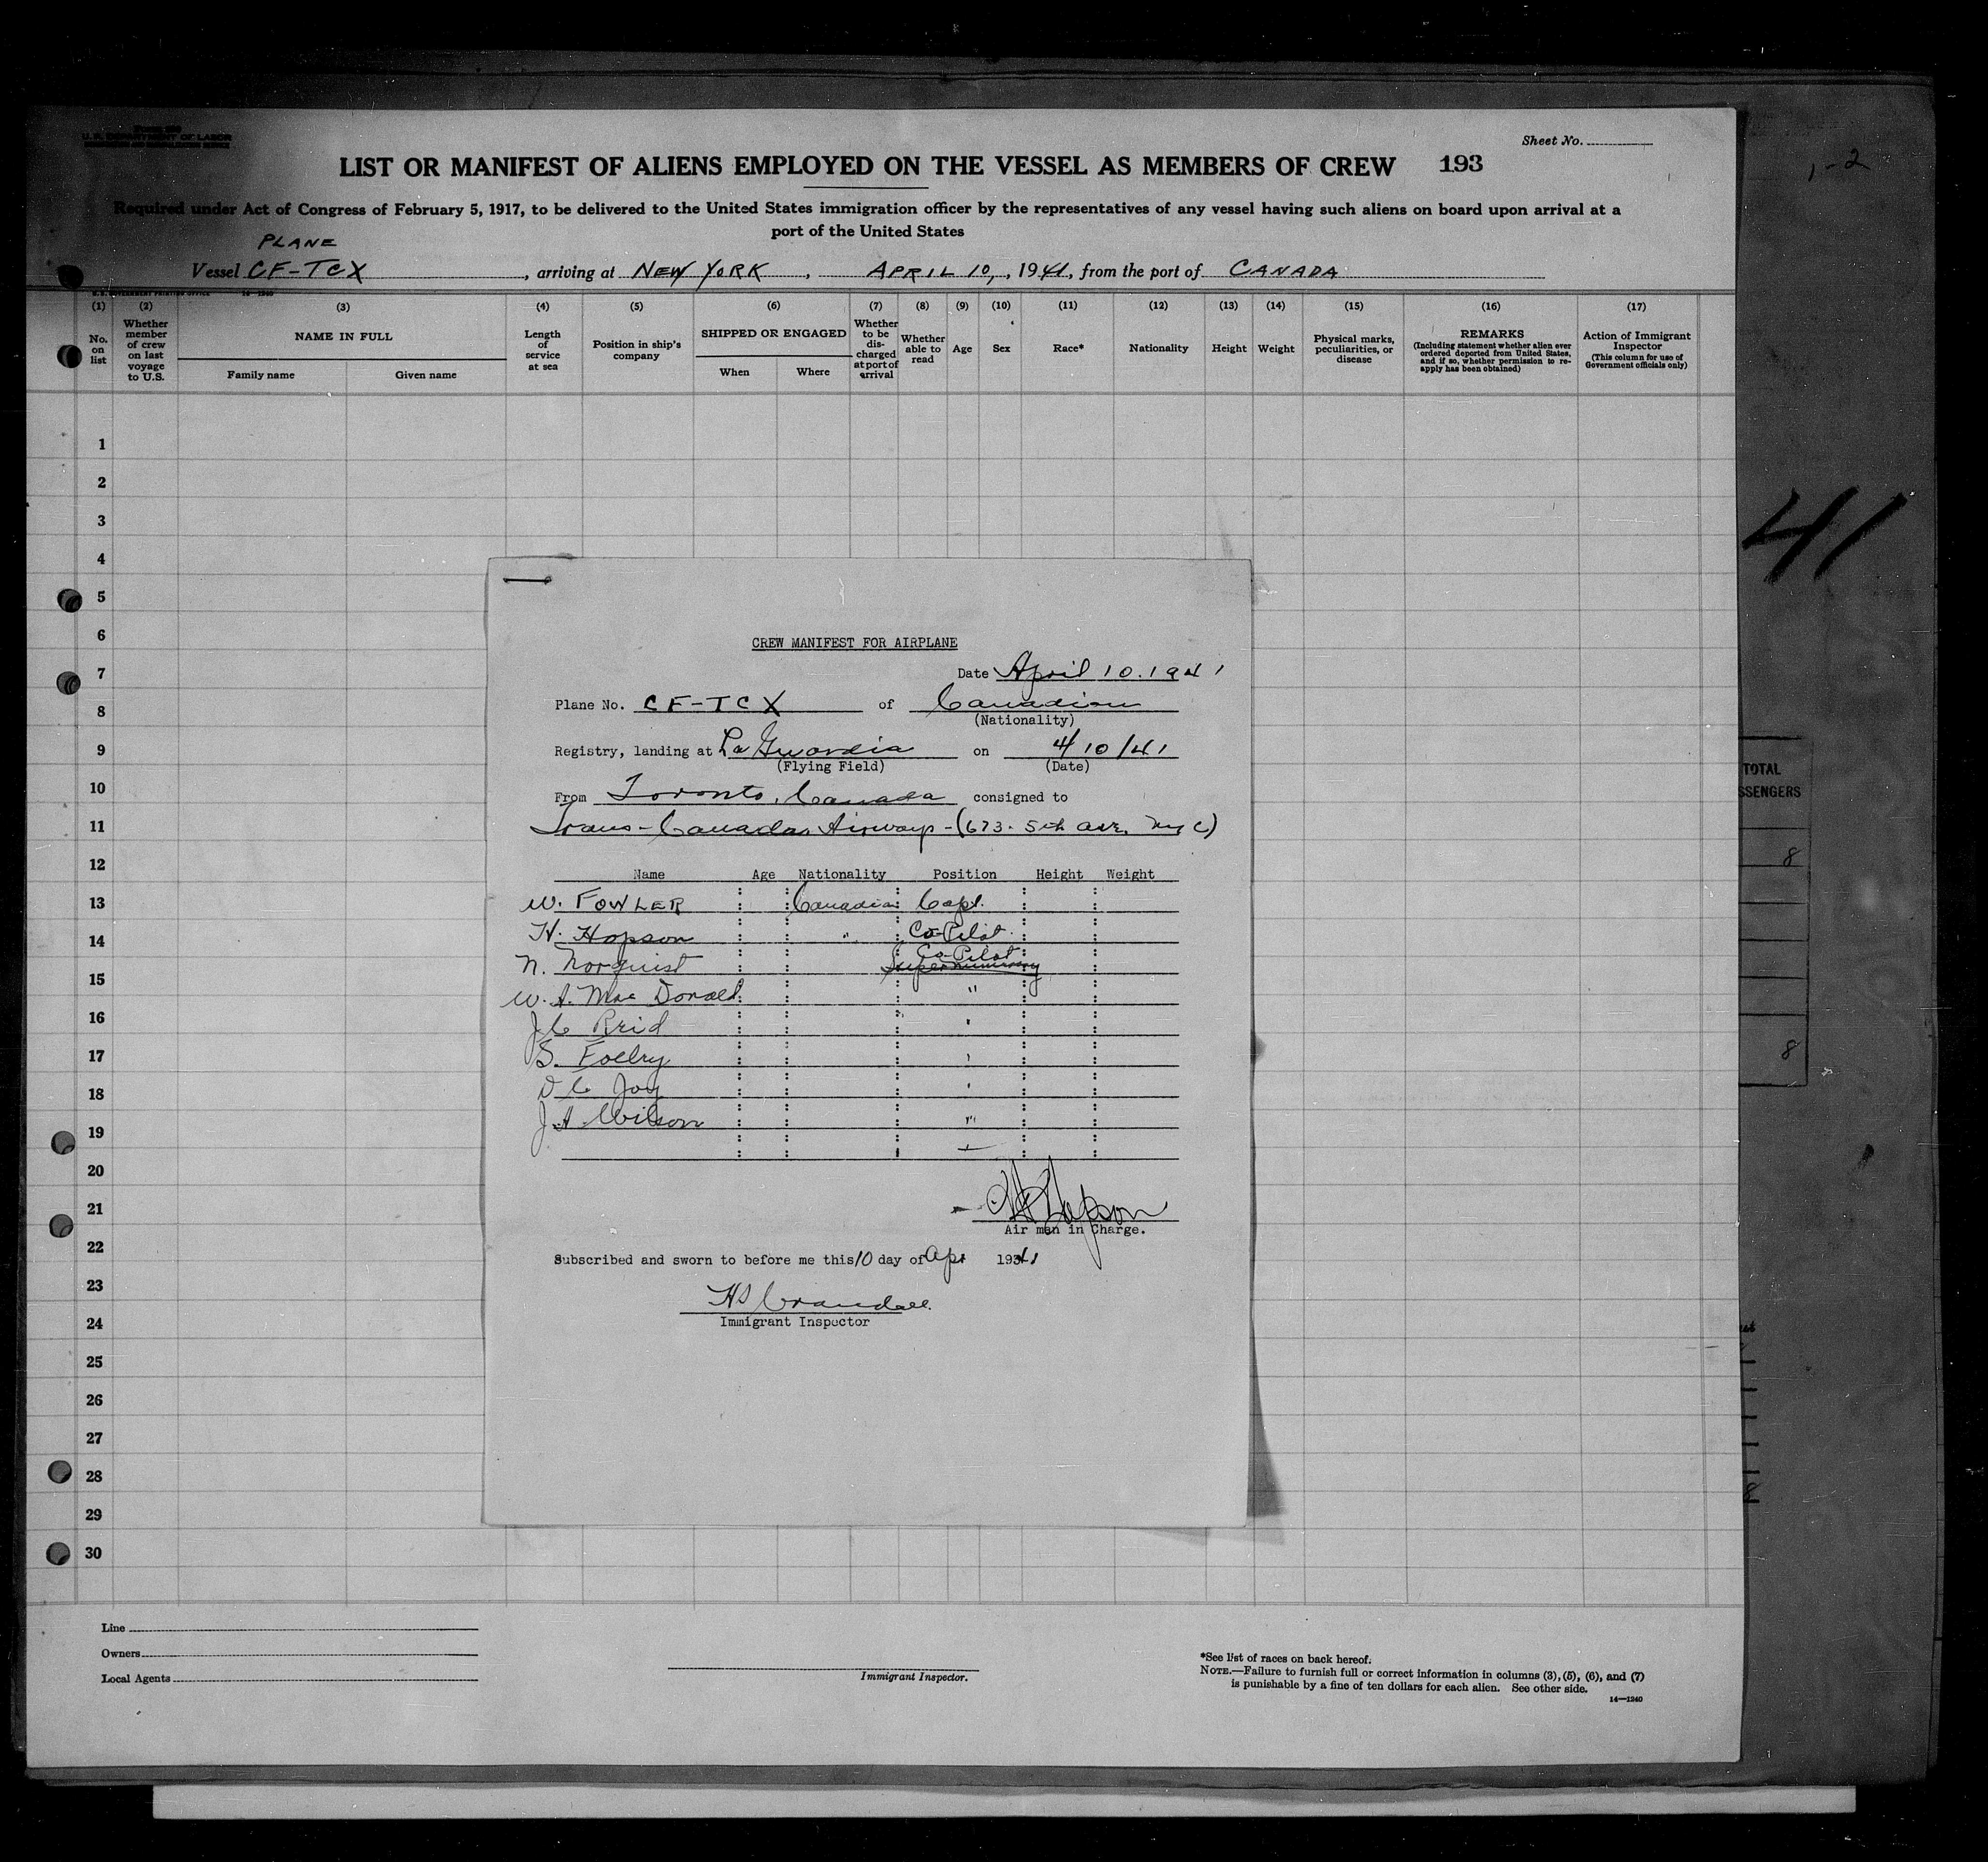 U. S. DEPARTMENT OF LABOR
Sheet No.
LIST OR MANIFEST OF ALIENS EMPLOYED ON THE VESSEL AS MEMBERS OF CREW 193
Required under Act of Congress of February 5, 1917, to be delivered to the United States immigration officer by the representatives of any vessel having such aliens on board upon arrival at a
port of the United States
PLANE
Vessel CF-TCX, arriving at NEW YORK, APRIL 10, 1941, from the port of CANADA
(1) (2) (3) (4) (5) (6) (7) (8) (9) (10) (11) (12) (13) (14) (15) (16) (17)
No. on list
Whether member of crew on last voyage to U.S.
NAME IN FULL
Family name Given name
Length of service at sea
Position in ship's company
SHIPPED OR ENGAGED
When Where
Whether to be dis-charged at port of arrival
Whether able to read
Age
Sex
Race*
Nationality
Height
Weight
Physical marks, peculiarities, or disease
REMARKS
(Including statement whether alien ever ordered deported from United States, and if so, whether permission to re-apply has been obtained)
Action of Immigrant Inspector
(This column for use of Government officials only)
1
2
3
4
5
6
7
8
9
10
11
12
13
14
15
16
17
18
19
20
21
22
23
24
25
26
27
28
29
30
CREW MANIFEST FOR AIRPLANE
Date April 10. 1941
Plane No. CF-TCX of Canadian
(Nationality)
Registry, landing at La Guardia on 4/10/41
(Flying Field) (Date)
From Toronto, Canada consigned to
Trans-Canada Airways - (673. 5th ave. NYC)
Name Age Nationality Position Height Weight
W. FOWLER Canadian Capt.
H. Hopson " Co-Pilot
Co-Pilot
N. Norquist Supernumerary
W. A. Mac Donald "
J C Reid "
S.
D C Joy "
J. A Wilson "
H Hopson
Air man in Charge.
Subscribed and sworn to before me this 10 day of Apr 1941
HS Crandall
Immigrant Inspector
Line
Owners
Local Agents
Immigrant Inspector.
*See list of races on back hereof.
NOTE.—Failure to furnish full or correct information in columns (3), (5), (6), and (7)
is punishable by a fine of ten dollars for each alien. See other side.
14—1240
1-2
41
TOTAL
SSENGERS
8
8
8